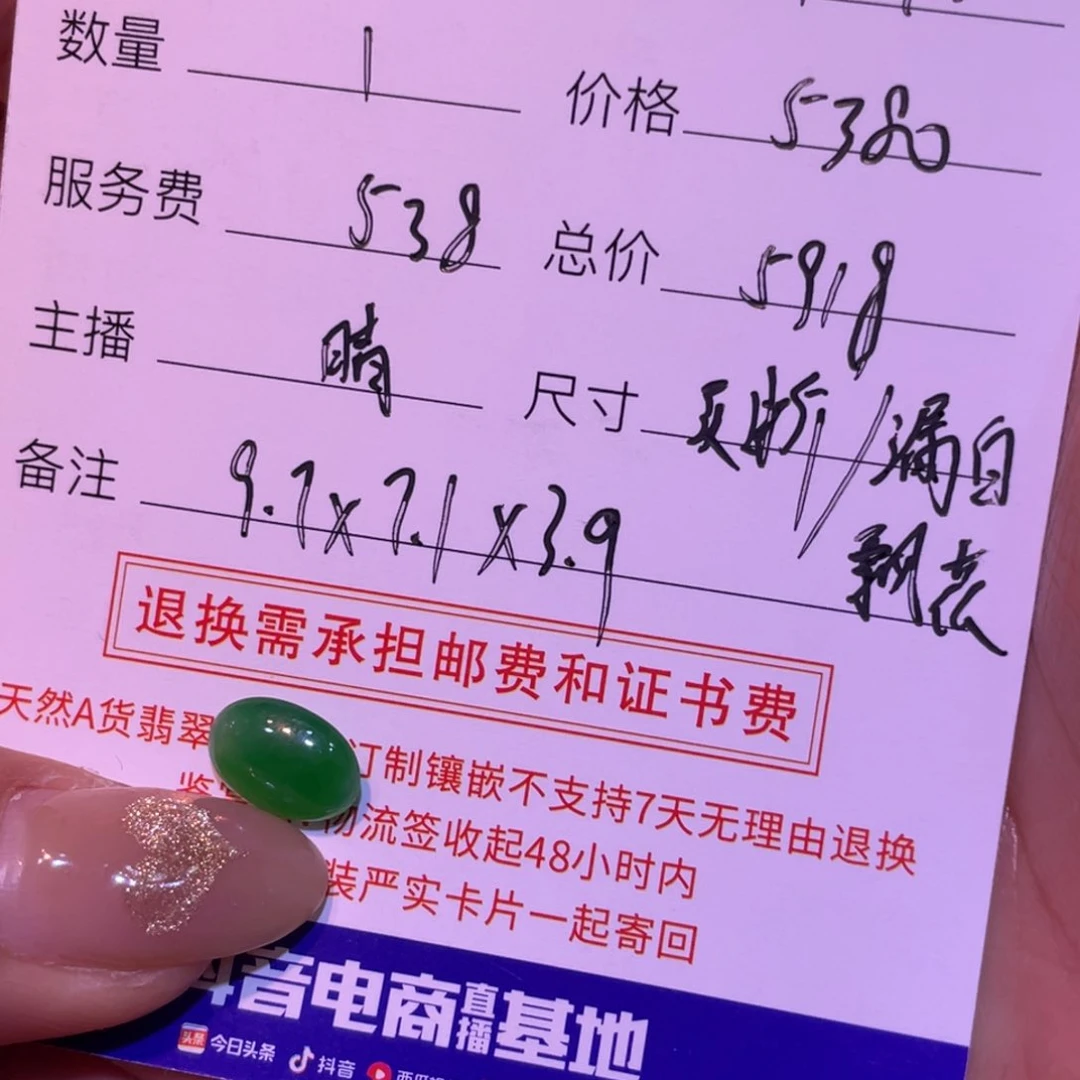 数量 1 价格 5380
服务费 538 总价 5918
主播 晴 尺寸 /漏白
飘花
备注 9.7x7.1x3.9
退换需承担邮费和证书费
天然A货翡翠 订制镶嵌不支持7天无理由退换
物流签收起48小时内
装严实卡片一起寄回
抖音电商直播基地
头条 今日头条 抖音